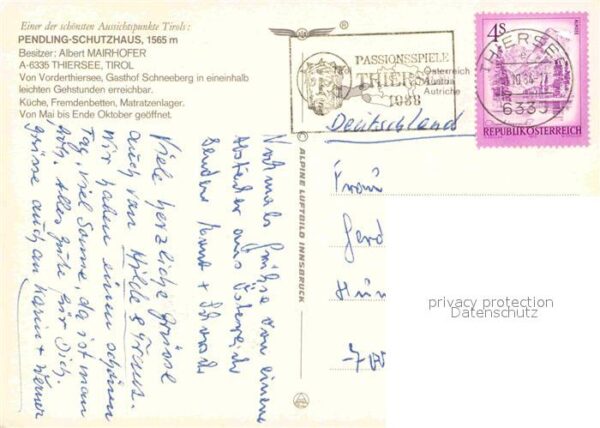 Einer der schönsten Aussichtspunkte Tirols:
PENDLING-SCHUTZHAUS, 1565 m
Besitzer: Albert MAIRHOFER
A-6335 THIERSEE, TIROL
Von Vorderthiersee, Gasthof Schneeberg in eineinhalb
leichten Gehstunden erreichbar.
Küche, Fremdenbetten, Matratzenlager.
Von Mai bis Ende Oktober geöffnet.
Viele herzliche Grüsse
auch von Hilde & Franz.
Wir haben einen schönen
Tag, viel Sonne, da ist man
Alles Gute für Dich.
Grüsse auch an Karin + Werner
Nochmals Grüsse von einem
aus Österreich
senden
© ALPINE LUFTBILD INNSBRUCK
PASSIONSSPIELE
THIERSEE
1988
Österreich
Austria
Autriche
4S
REPUBLIK ÖSTERREICH
THIERSEE
6335
Deutschland
Frau
Gerd
privacy protection
Datenschutz